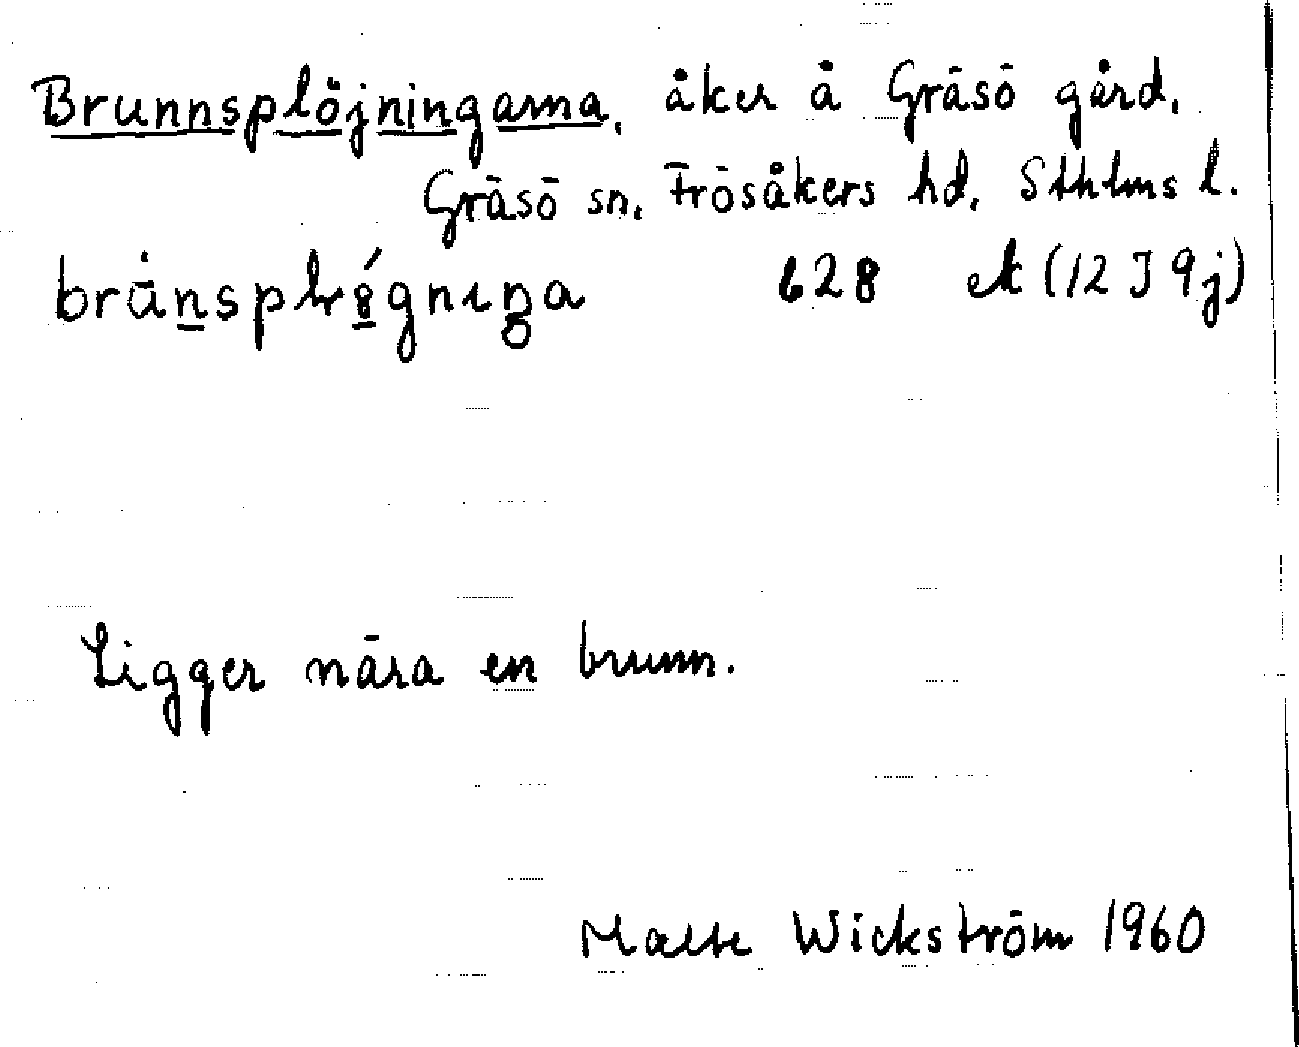 Brunnsplöjningarna, åker å Gräsö gård,
Gräsö sn, Frösåkers hd, Sthlms l.
628 ek (12 I 9 j)
Ligger nära en brunn.
Malte Wickström 1960